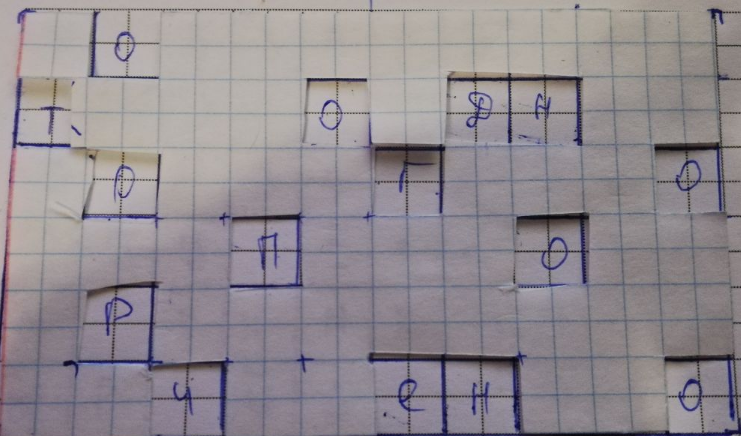 О
Т О Д Н
О Г О
П О
Р
Ч Е Н О